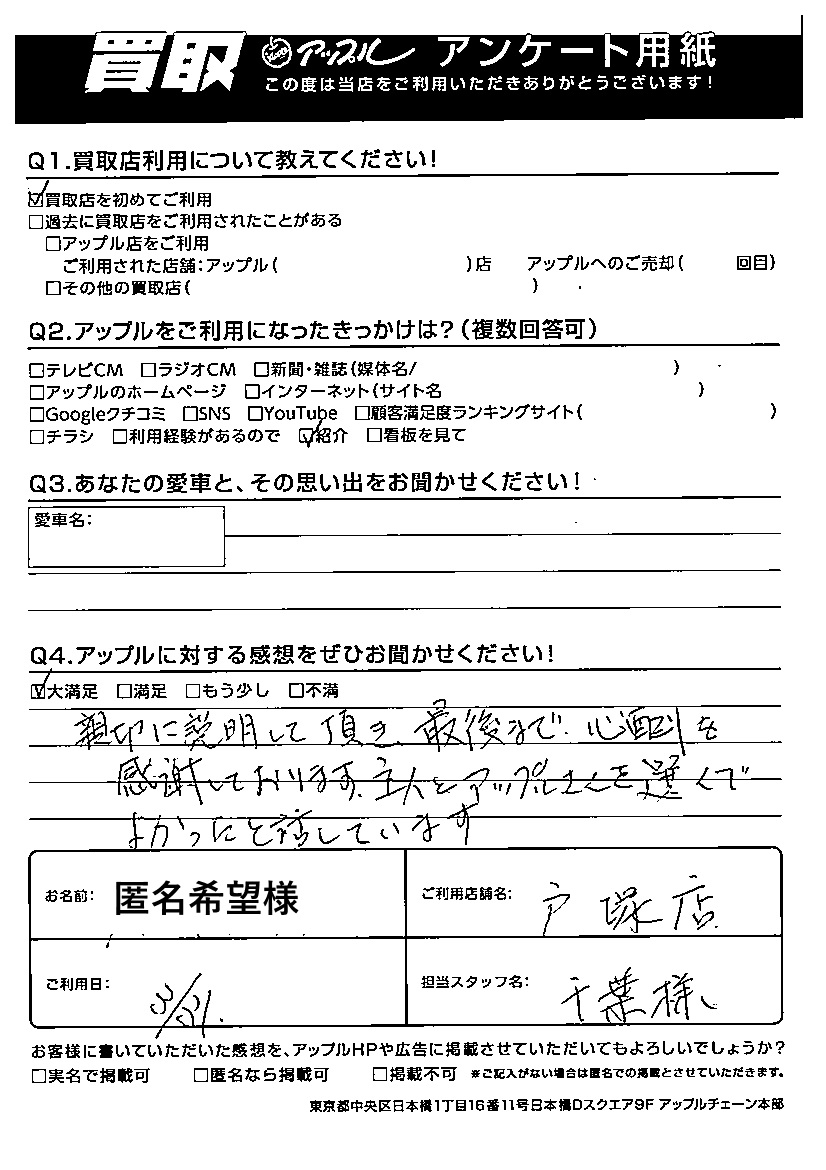 買取 アップル アンケート用紙
この度は当店をご利用いただきありがとうございます!
Q1.買取店利用について教えてください!
☑買取店を初めてご利用
□過去に買取店をご利用されたことがある
□アップル店をご利用
ご利用された店舗:アップル( )店 アップルへのご売却( 回目)
□その他の買取店( )
Q2.アップルをご利用になったきっかけは?(複数回答可)
□テレビCM □ラジオCM □新聞・雑誌(媒体名/ )
□アップルのホームページ □インターネット(サイト名 )
□Googleクチコミ □SNS □YouTube □顧客満足度ランキングサイト( )
□チラシ □利用経験があるので ☑紹介 □看板を見て
Q3.あなたの愛車と、その思い出をお聞かせください!
愛車名:
Q4.アップルに対する感想をぜひお聞かせください!
☑大満足 □満足 □もう少し □不満
親切に説明して頂き、最後まで、心配りを
感謝しております。主人とアップルさんを選んで
よかったと話しています
お名前: 匿名希望様
ご利用店舗名: 戸塚店
ご利用日:
担当スタッフ名: 千葉様
お客様に書いていただいた感想を、アップルHPや広告に掲載させていただいてもよろしいでしょうか?
□実名で掲載可 □匿名なら掲載可 □掲載不可 ※ご記入がない場合は匿名での掲載とさせていただきます。
東京都中央区日本橋1丁目16番11号日本橋Dスクエア9F アップルチェーン本部